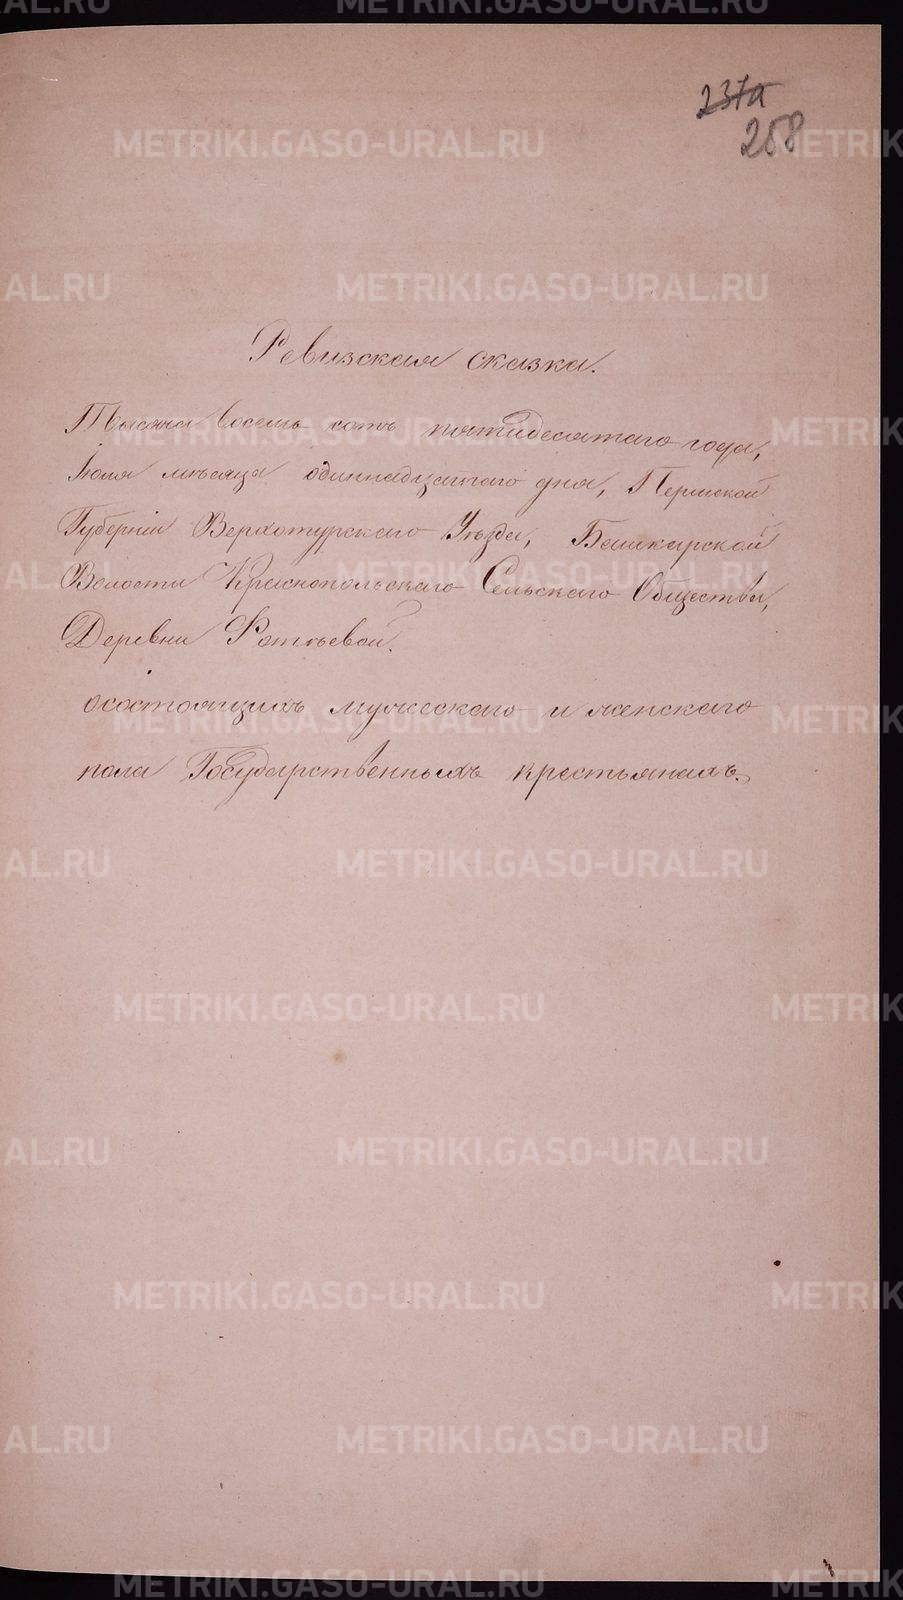 237а
258
Ревизская сказка.
Тысяча восемь сотъ пятидесятаго года,
Іюля мѣсяца одиннадцатаго дня, Пермской
Губерніи Верхотурскаго Уѣзда, Башкарской
Волости Краснопольскаго Сельскаго Общества,
Деревни Фотѣевой.
осостоящихъ мужескаго и женскаго
пола Государственныхъ крестьянахъ.
METRIKI.GASO-URAL.RU